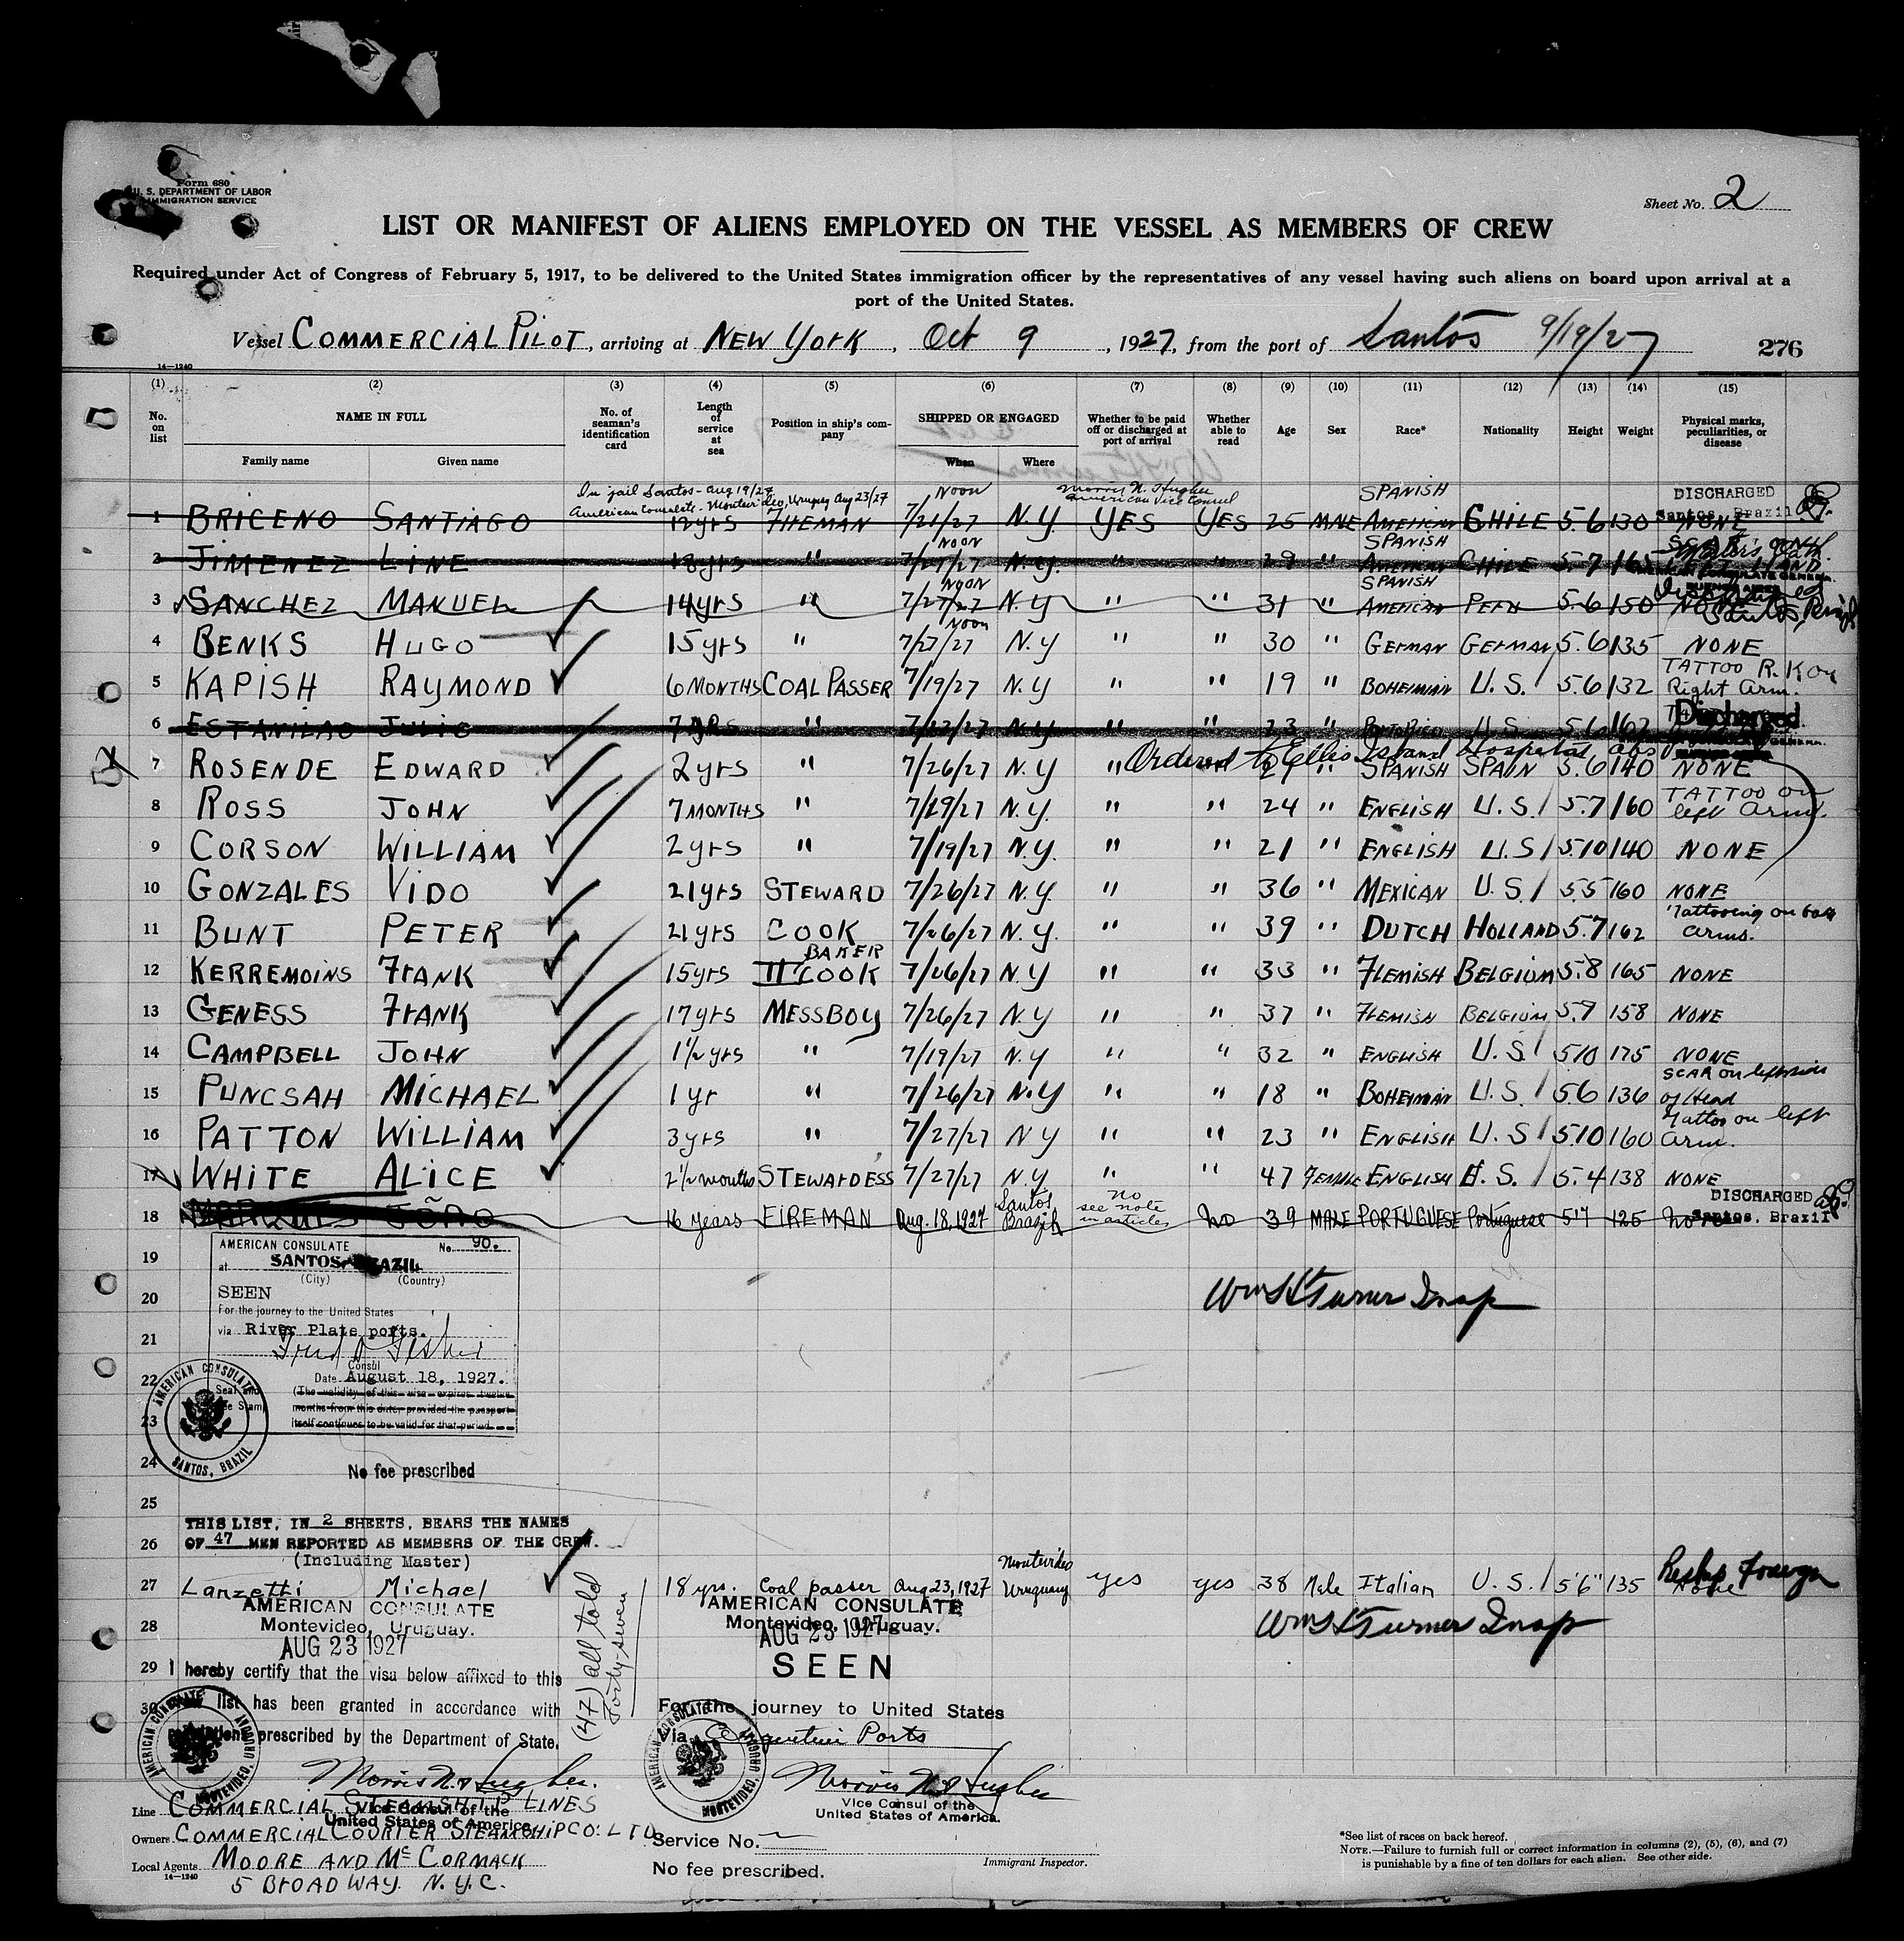 Form 680
U. S. DEPARTMENT OF LABOR
IMMIGRATION SERVICE
Sheet No. 2
LIST OR MANIFEST OF ALIENS EMPLOYED ON THE VESSEL AS MEMBERS OF CREW
Required under Act of Congress of February 5, 1917, to be delivered to the United States immigration officer by the representatives of any vessel having such aliens on board upon arrival at a
port of the United States.
Vessel COMMERCIAL PILOT, arriving at NEW YORK, Oct 9, 1927, from the port of Santos 9/19/27
276
14—1240
(1) (2) (3) (4) (5) (6) (7) (8) (9) (10) (11) (12) (13) (14) (15)
No. on list NAME IN FULL Family name Given name No. of seaman's identification card Length of service at sea Position in ship's company SHIPPED OR ENGAGED When Where Whether to be paid off or discharged at port of arrival Whether able to read Age Sex Race* Nationality Height Weight Physical marks, peculiarities, or disease
In jail Santos - Aug 19/27 Noon Morris N. Hughes SPANISH DISCHARGED
American Consulate - Montevideo, Uruguay Aug 23/27 American Vice Consul Santos, Brazil
1 BRICENO SANTIAGO 12yrs FIREMAN 7/21/27 N.Y. YES YES 25 MALE AMERICAN CHILE 5.6 130 NONE
NOON SPANISH
2 JIMENEZ LINE 18yrs " 7/27/27 N.Y. " " 29 " AMERICAN CHILE 5.7 165 HAND
NOON SPANISH
3 SANCHEZ MANUEL 14yrs " 7/27/27 N.Y " " 31 " AMERICAN PERU 5.6 150 Santos,
Noon
4 BENKS HUGO 15yrs " 7/27/27 N.Y " " 30 " GERMAN GERMAN 5.6 135 NONE
5 KAPISH RAYMOND 6 MONTHS COAL PASSER 7/19/27 N.Y " " 19 " BOHEIMIAN U.S. 5.6 132 TATTOO R.K on Right Arm.
6 ESTANILAO JULIO 7 YRS " N.Y " " 23 " U.S. 5.6 162 Discharged.
Ordered to Ellis Island Hospital
7 ROSENDE EDWARD 2yrs " 7/26/27 N.Y " " " SPANISH SPAIN 5.6 140 NONE
8 ROSS JOHN 7 MONTHS " 7/19/27 N.Y. " " 24 " ENGLISH U.S. 5.7 160 TATTOO on left Arm.
9 CORSON WILLIAM 2yrs " 7/19/27 N.Y. " " 21 " ENGLISH U.S 5.10 140 NONE
10 GONZALES VIDO 21yrs STEWARD 7/26/27 N.Y. " " 36 " MEXICAN U.S. 5.5 160 NONE
11 BUNT PETER 21yrs COOK 7/26/27 N.Y. " " 39 " DUTCH HOLLAND 5.7 162 Tattooing on both arms.
BAKER
12 KERREMOINS FRANK 15yrs II COOK 7/26/27 N.Y " " 33 " FLEMISH BELGIUM 5.8 165 NONE
13 GENESS FRANK 17yrs MESSBOY 7/26/27 N.Y " " 37 " FLEMISH BELGIUM 5.7 158 NONE
14 CAMPBELL JOHN 1½ yrs " 7/19/27 N.Y " " 32 " ENGLISH U.S. 5.10 175 NONE
15 PUNCSAH MICHAEL 1 yr " 7/26/27 N.Y " " 18 " BOHEIMIAN U.S. 5.6 136 SCAR on left side of Head
16 PATTON WILLIAM 3yrs " 7/27/27 N Y " " 23 " ENGLISH U.S 5.10 160 Tattoo on left Arm.
17 WHITE ALICE 2½ months STEWARDESS 7/27/27 N.Y. " " 47 FEMALE ENGLISH U.S. 5.4 138 NONE
18 MARQUES JOÃO 16 years FIREMAN Aug. 18, 1927 Santos Brazil no see note in articles No 39 MALE PORTUGUESE Portuguese 5'7 125 None DISCHARGED Santos, Brazil
19
20
21
22
23
24
25
26
AMERICAN CONSULATE No. 90.
at SANTOS, BRAZIL
(City) (Country)
SEEN
For the journey to the United States
via River Plate ports.
Consul
Date August 18, 1927.
(The validity of this visa expires twelve
months from this date, provided the passport
itself continues to be valid for that period.
AMERICAN CONSULATE SANTOS, BRAZIL
No fee prescribed
Wm H Turner Insp
THIS LIST, IN 2 SHEETS, BEARS THE NAMES
OF 47 MEN REPORTED AS MEMBERS OF THE CREW.
(Including Master)
27 Lanzetti Michael 18 yrs. Coal passer Aug 23, 1927 Montevideo Uruguay yes yes 38 Male Italian U.S. 5'6" 135 None
28
29
30
AMERICAN CONSULATE
Montevideo, Uruguay.
AUG 23 1927
I hereby certify that the visa below affixed to this
list has been granted in accordance with
prescribed by the Department of State.
Morris N. Hughes.
Vice Consul of the
United States of America.
(47) all told
Forty-seven
AMERICAN CONSULATE
Montevideo, Uruguay.
AUG 23 1927
SEEN
For the journey to United States
Via Argentine Ports
Morris N. Hughes
Vice Consul of the
United States of America.
Service No.
No fee prescribed.
AMERICAN CONSULATE MONTEVIDEO, URUGUAY
AMERICAN CONSULATE MONTEVIDEO, URUGUAY
Wm H Turner Insp
Line COMMERCIAL STEAMSHIP LINES
Owners COMMERCIAL COURIER STEAMSHIP CO. LTD
Local Agents MOORE AND McCORMACK
14—1240
5 BROADWAY. N.Y.C.
Immigrant Inspector.
*See list of races on back hereof.
NOTE.—Failure to furnish full or correct information in columns (2), (5), (6), and (7)
is punishable by a fine of ten dollars for each alien. See other side.